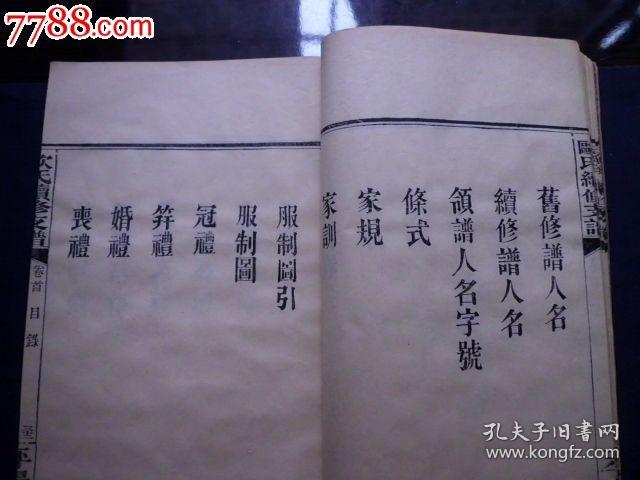 7788.com
歐氏續修支譜
舊修譜人名
續修譜人名
領譜人名字號
條式
家規
家訓
服制圖引
服制圖
冠禮
筓禮
婚禮
喪禮
歐氏續修支譜
卷首
目錄
孔夫子旧书网
www.kongfz.com